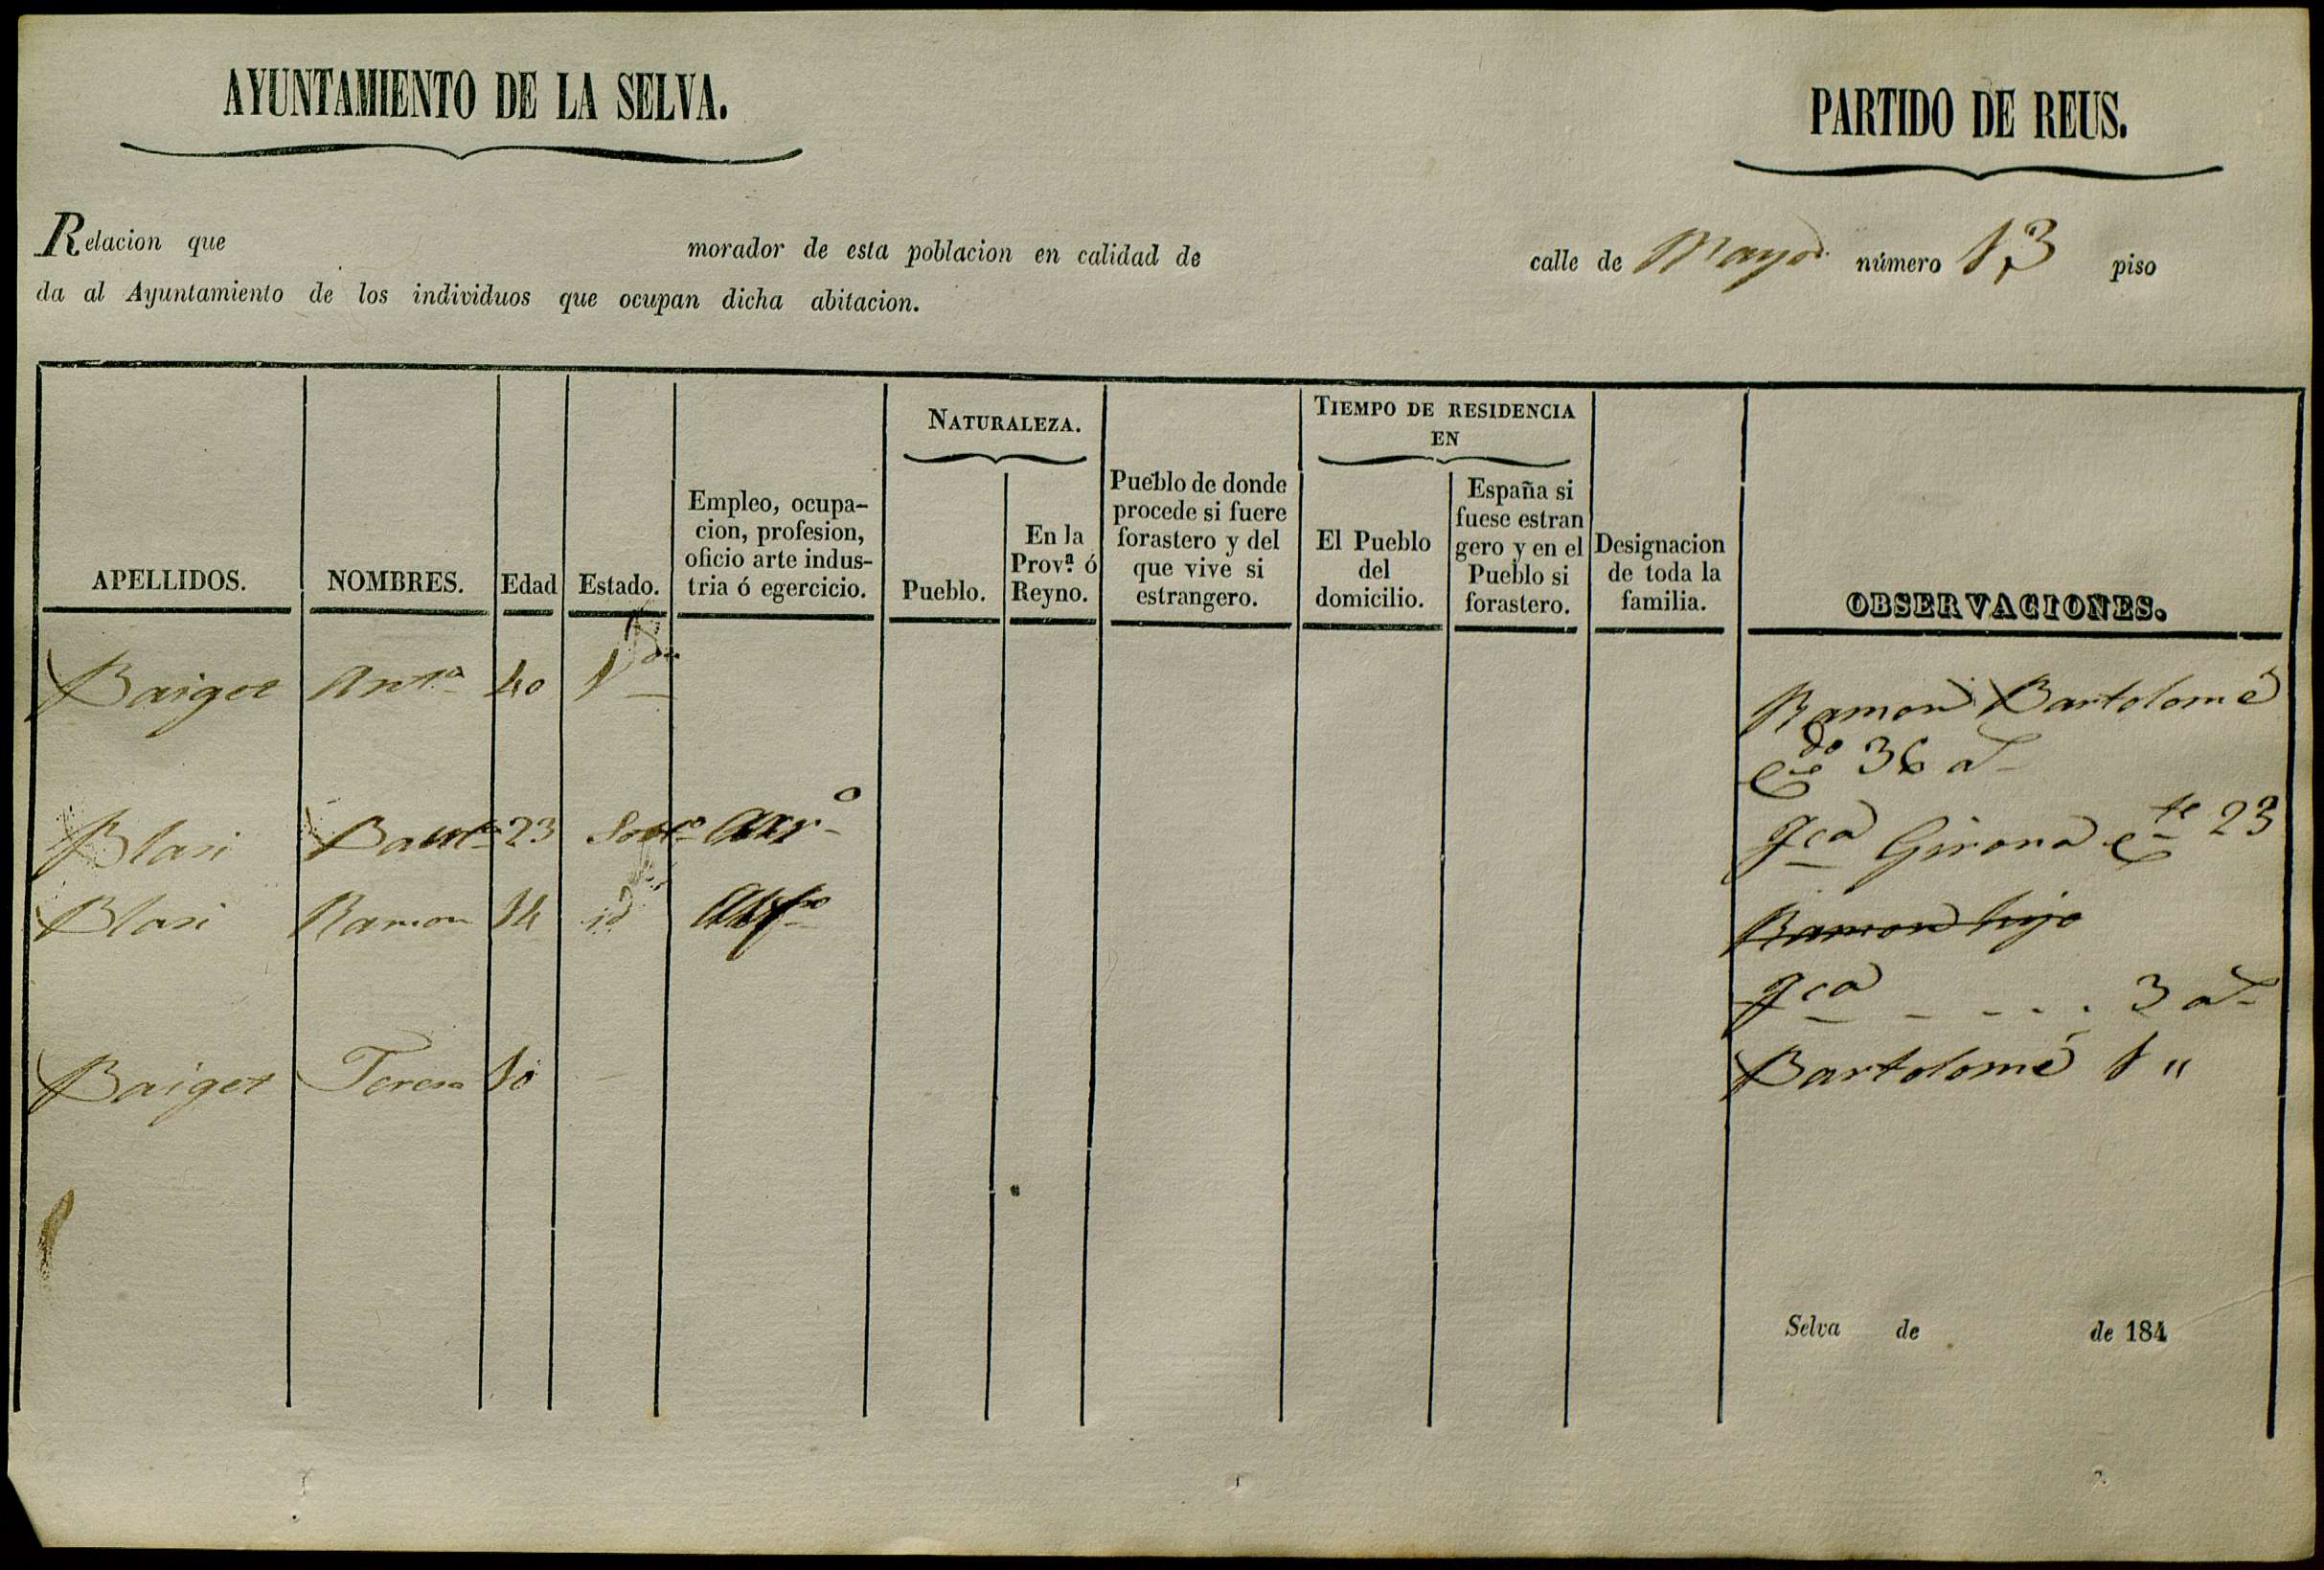 AYUNTAMIENTO DE LA SELVA.
PARTIDO DE REUS.
Relacion que morador de esta poblacion en calidad de calle de Mayor número 13 piso
da al Ayuntamiento de los individuos que ocupan dicha abitacion.
NATURALEZA.
TIEMPO DE RESIDENCIA
EN
APELLIDOS.
NOMBRES.
Edad
Estado.
Empleo, ocupa-
cion, profesion,
oficio arte indus-
tria ó egercicio.
Pueblo.
En la
Prov.ª ó
Reyno.
Pueblo de donde
procede si fuere
forastero y del
que vive si
estrangero.
El Pueblo
del
domicilio.
España si
fuese estran
gero y en el
Pueblo si
forastero.
Designacion
de toda la
familia.
OBSERVACIONES.
Baiget Ant.ª 40 V.da
Blasi Baut.ª 23 Solt.º
Blasi Ramon 14 id
Baiget Teresa 10 —
Ramon Bartolomé
36 a.s
Fca Girona 23
Ramon hijo
Fca - - - . . 3 a.s
Bartolomé 1 "
Selva de de 184